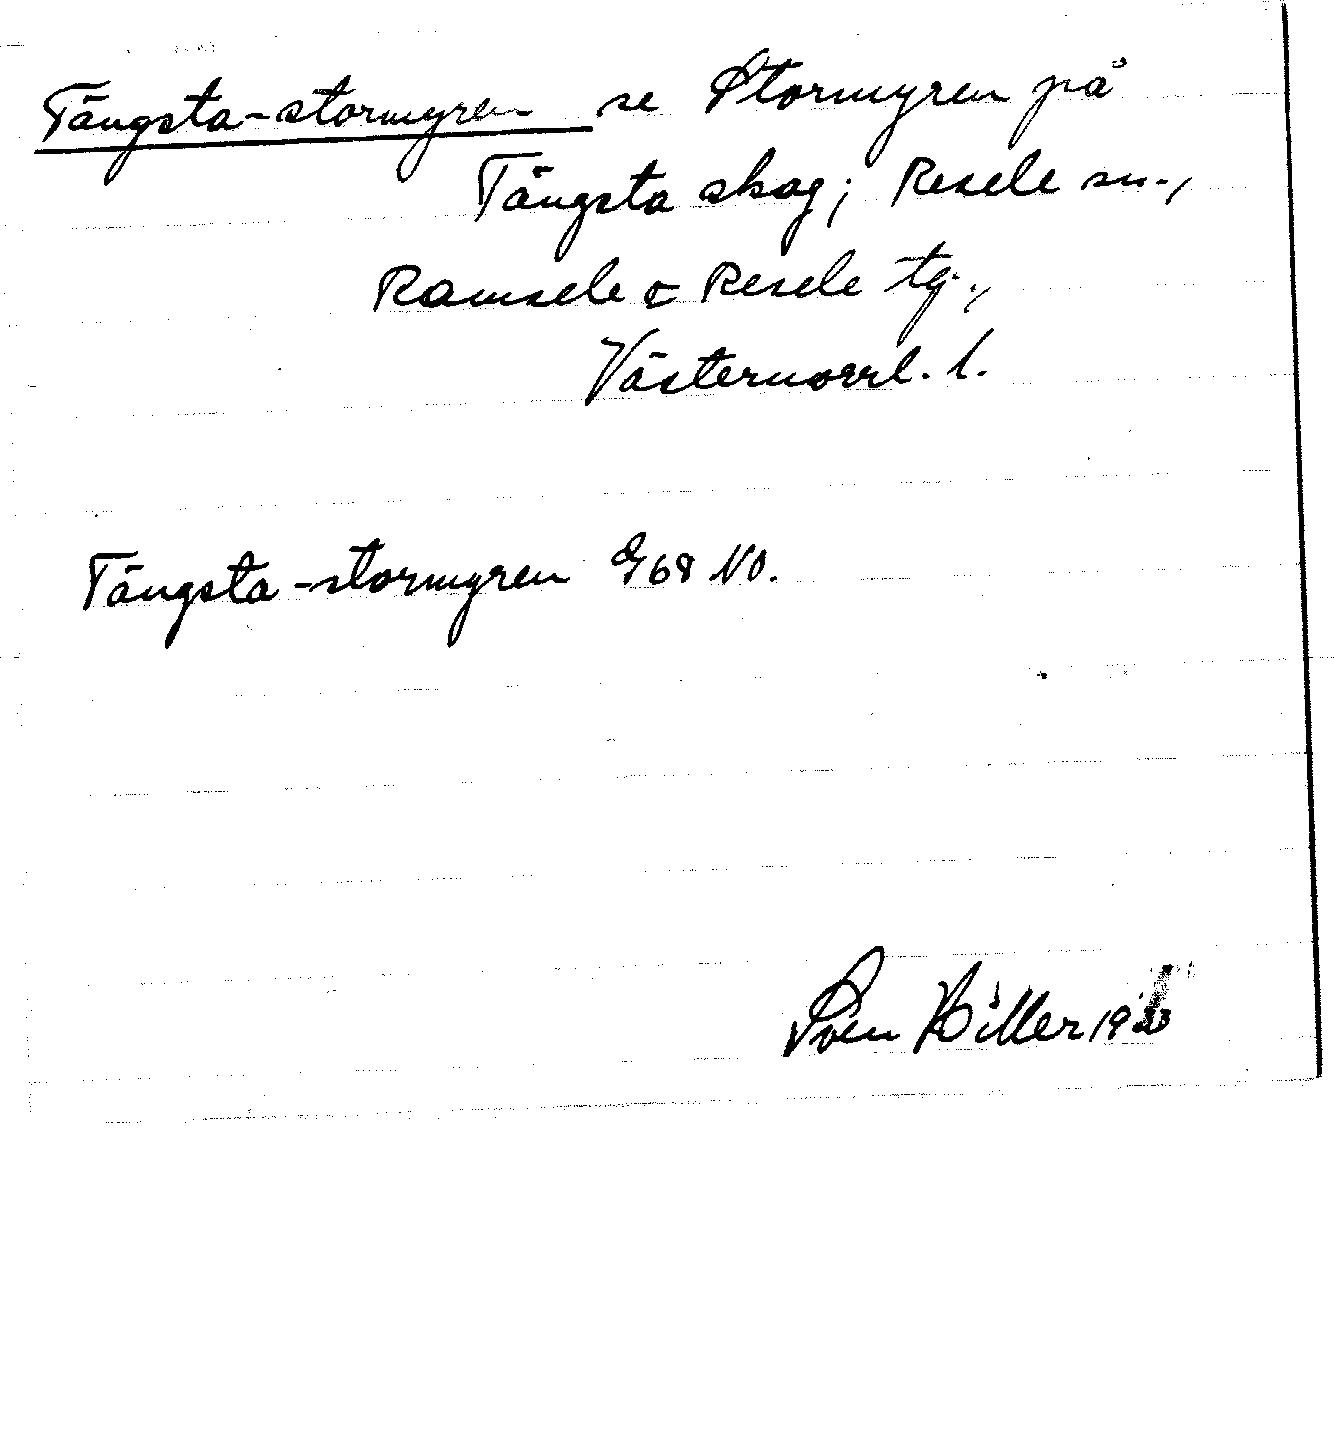 Tängsta-stormyren se Stormyren på
Tängsta skog; Resele sn.,
Ramsele o Resele tg.,
Västernorrl. l.
Tängsta-stormyren G68 NO.
Sven Hiller